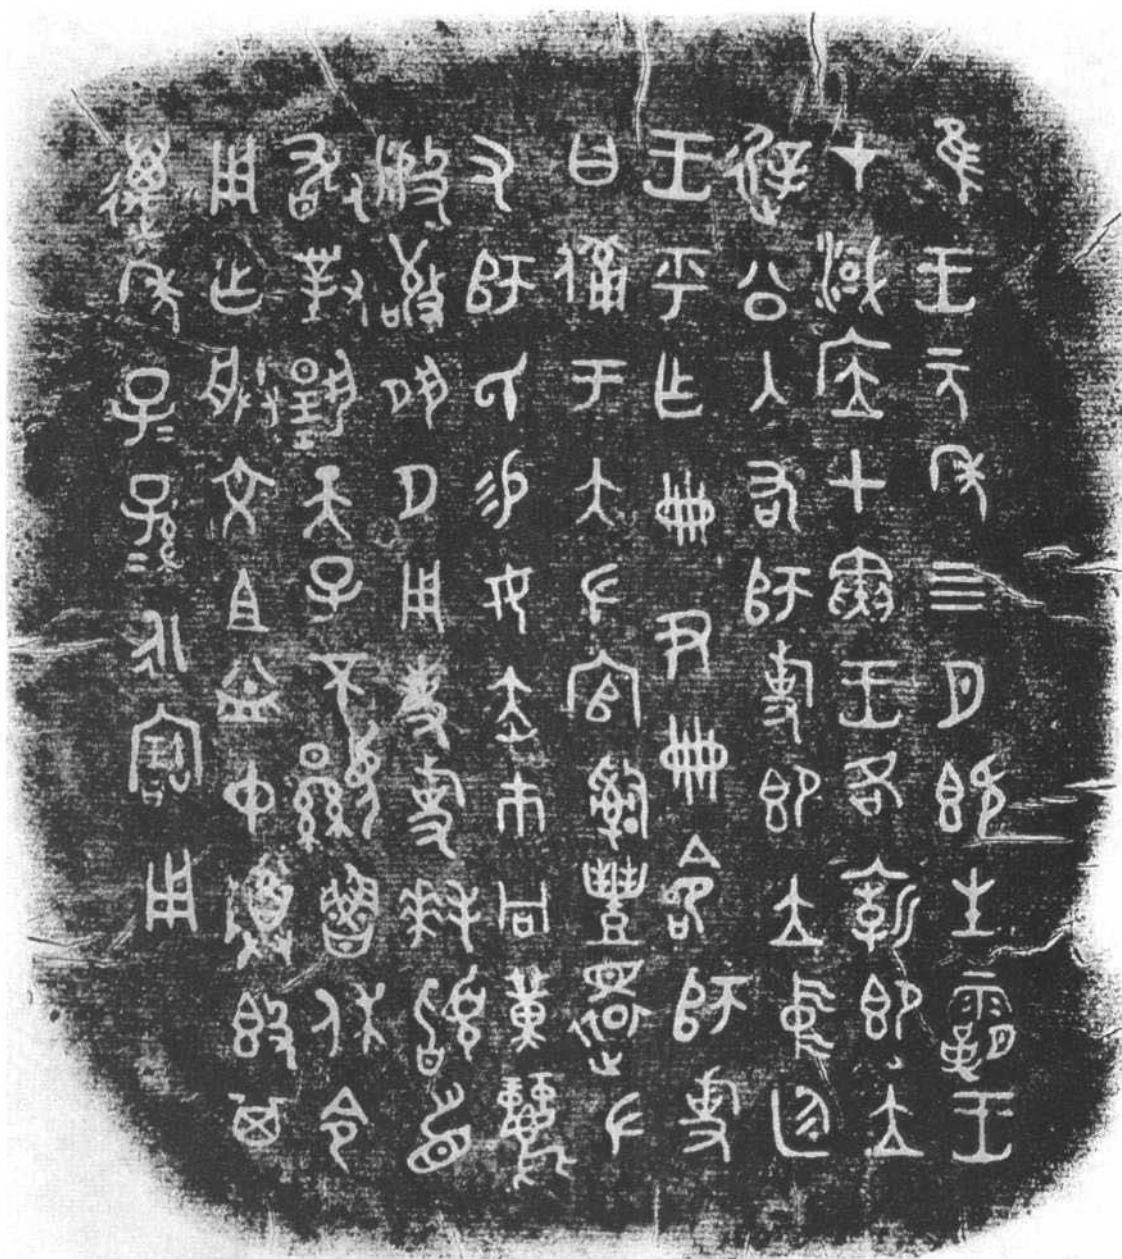 隹王元年四月既生霸王
才淢应甲寅王各廟即立
遟公入右師旋即立中廷
王乎乍冊尹冊命師旋
曰備于大左官𤔲豐還左
又師氏易女赤巿冋黃麗
般敬夙夕用事旋拜𩒨首
敢對揚天子不顯魯休令
用乍朕文且益中尊𣪘其
邁年子=孫=永寶用